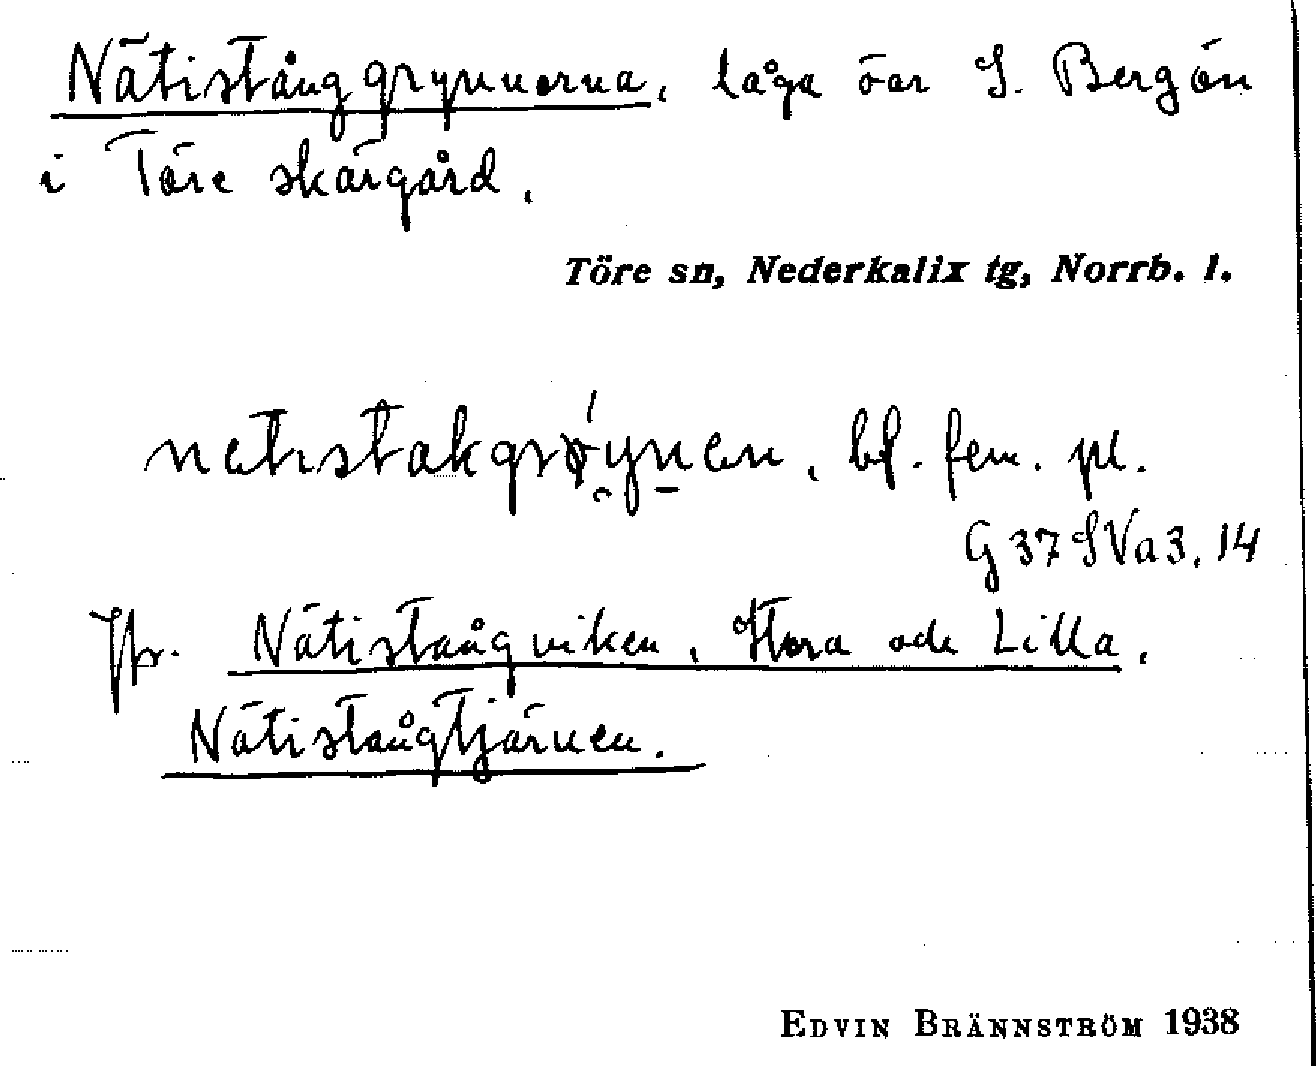 Nätistånggrynnorna, låga öar S. Bergön
i Töre skärgård.
Töre sn, Nederkalix tg, Norrb. l.
bf. fem. pl.
G 37 SVa3, 14
Jfr. Nätistångviken, Stora och Lilla,
Nätistångtjärnen.
EDVIN BRÄNNSTRÖM 1938